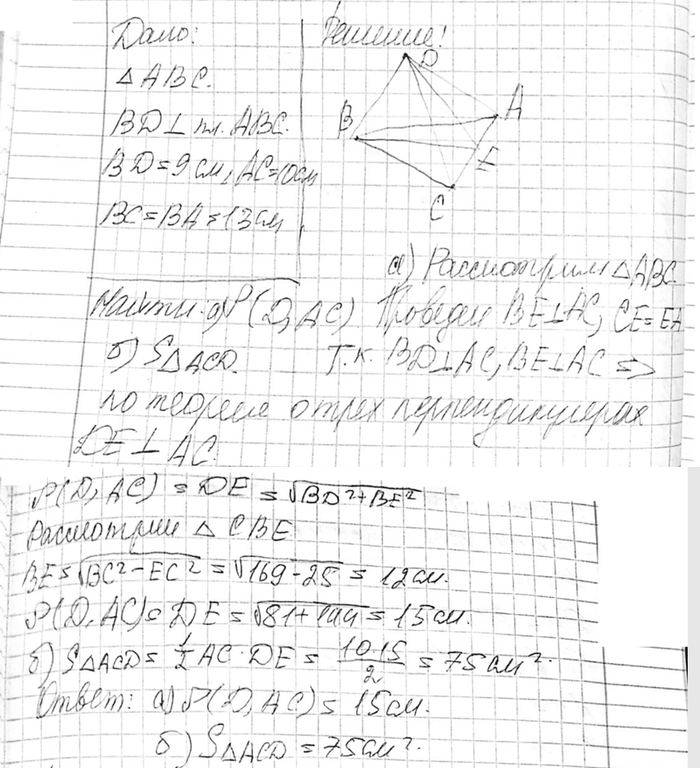 Дано:
△ABC.
BD⊥пл. ABC.
BD=9см, AC=10см
BC=BA=13см
Найти: а) P(D, AC)
б) S△ACD.
Решение!
D
B
A
E
C
а) Рассмотрим △ABC
Проведем BE⊥AC, CE=EA
Т.к. BD⊥AC, BE⊥AC =>
по теореме о трех перпендикулярах
DE⊥AC
P(D, AC) = DE = √BD²+BE²
Рассмотрим △CBE
BE=√BC²-EC² = √169-25 = 12см.
P(D, AC)=DE=√81+144=15см.
б) S△ACD= 1/2 AC·DE= 10·15/2 =75см².
Ответ: а) P(D, AC)=15см.
б) S△ACD=75см².